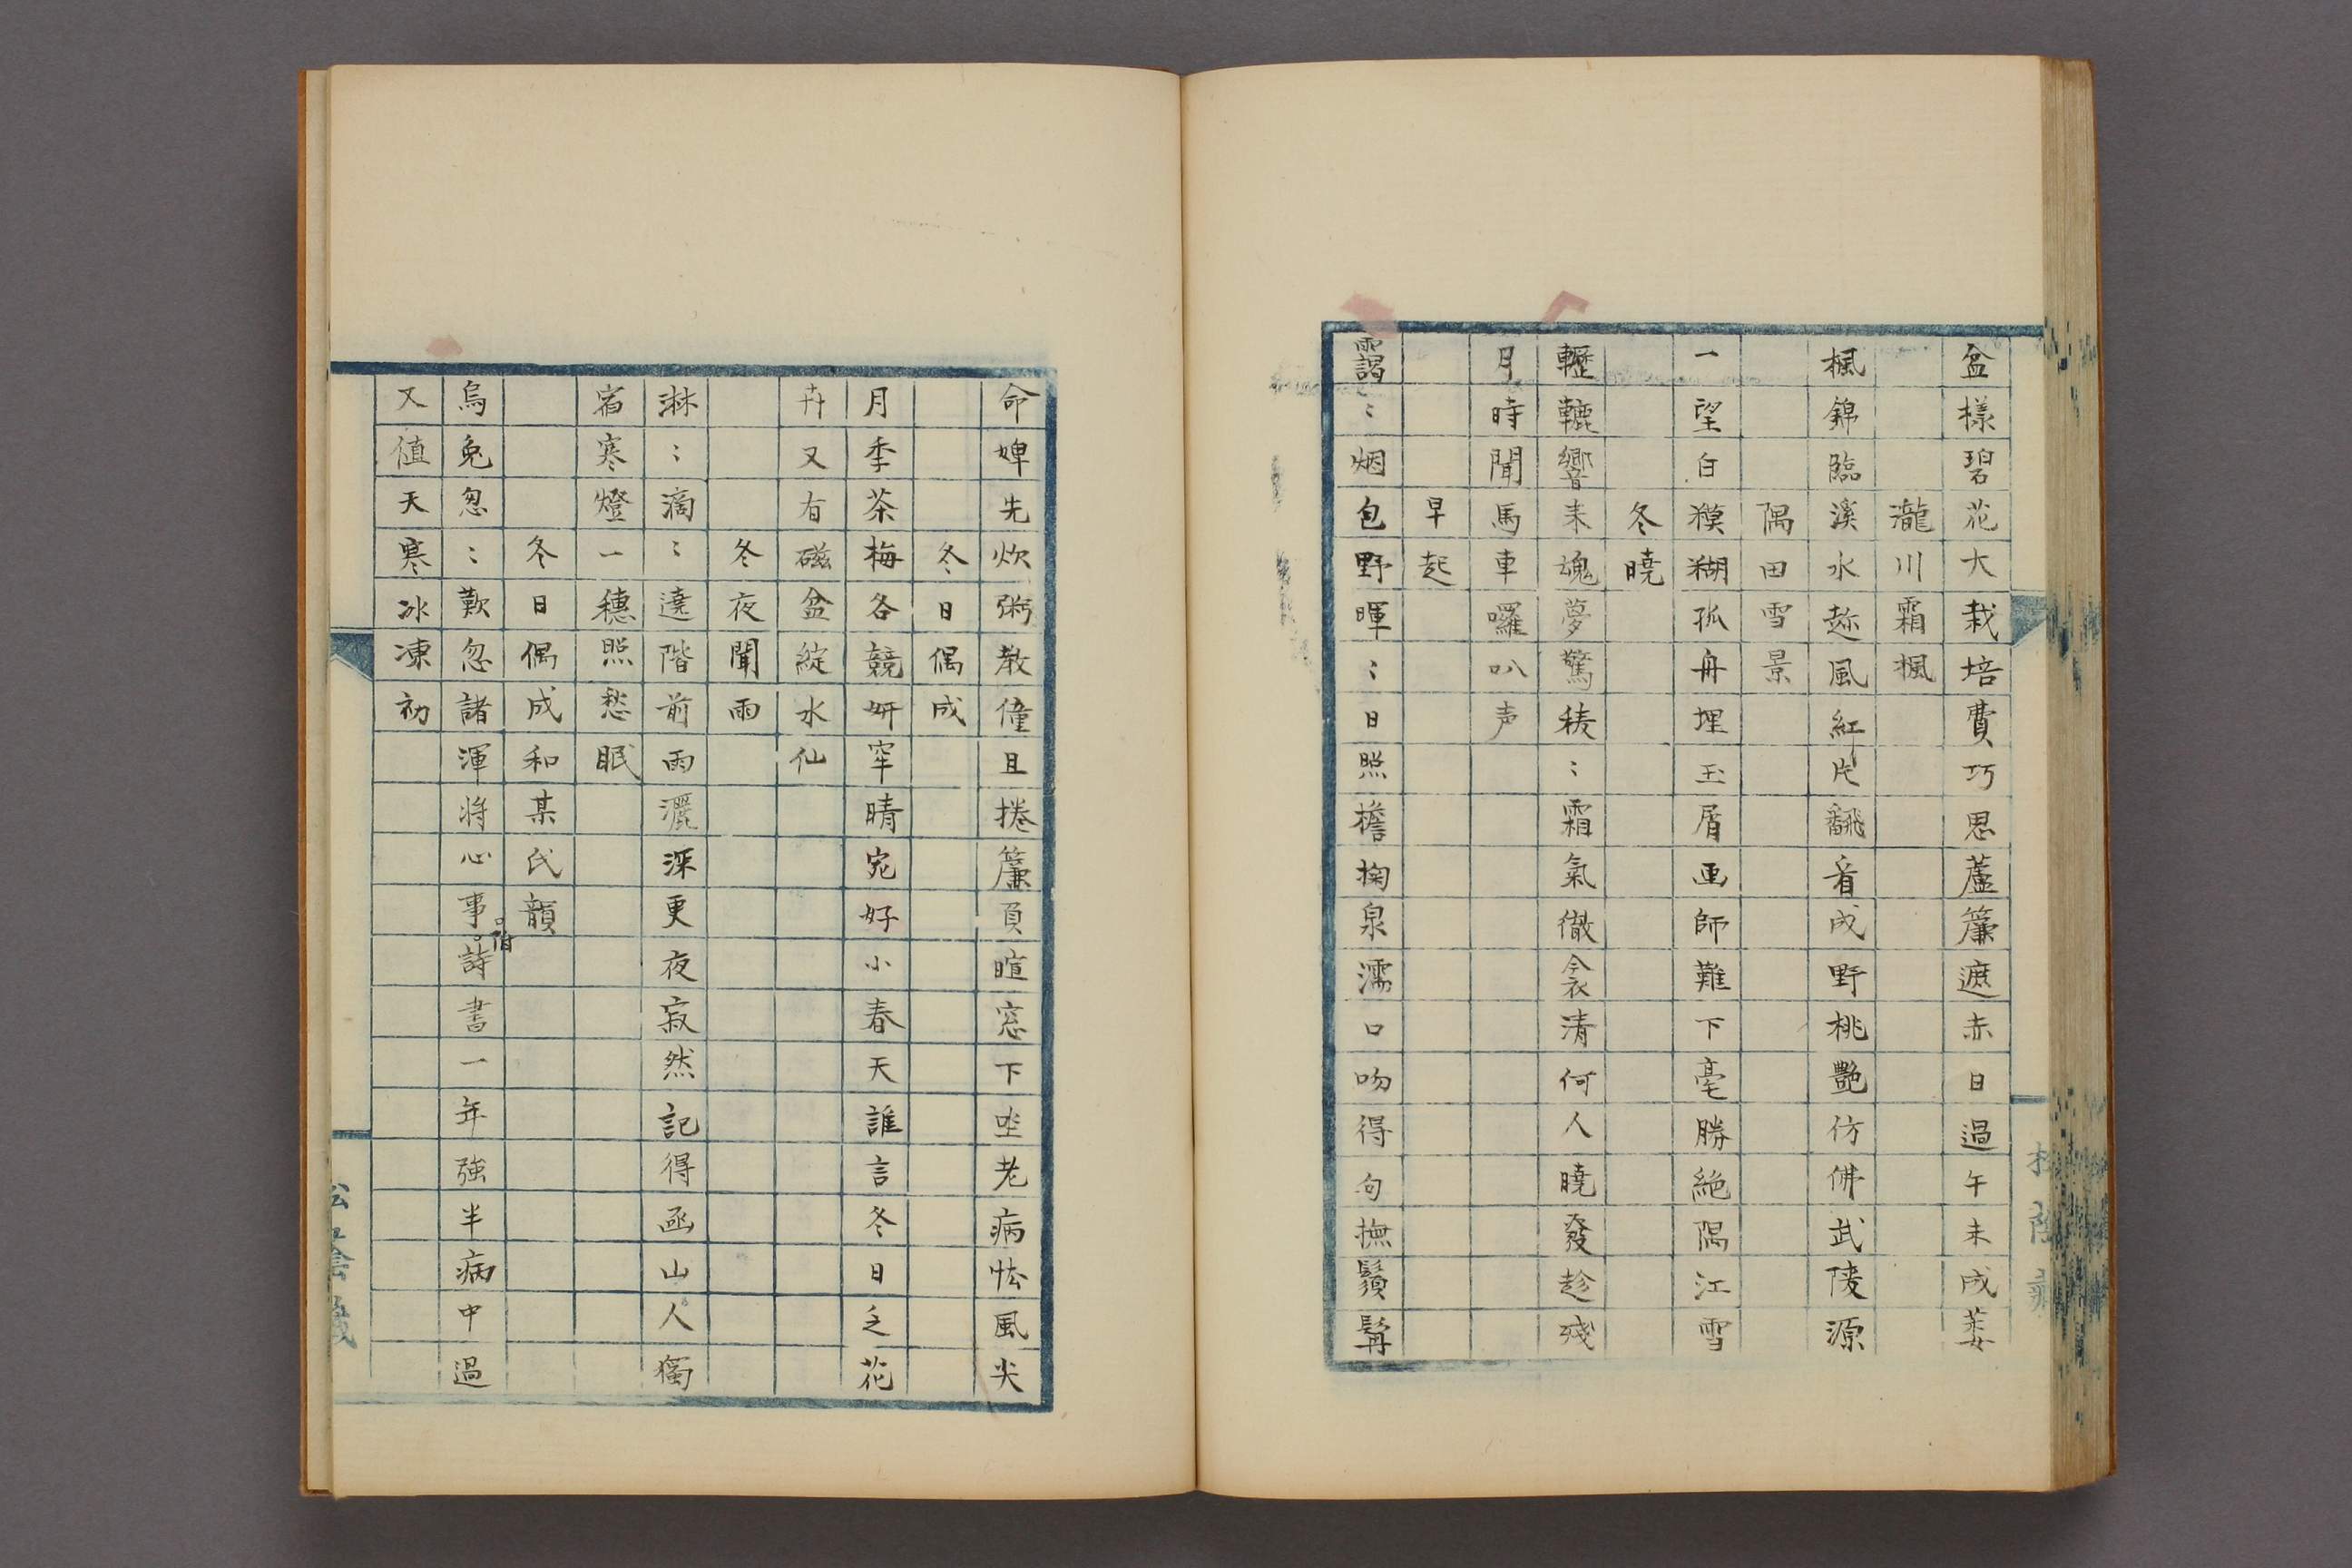 盆樣碧花大栽培費巧思蘆簾遮赤日過午未成萎
瀧川霜楓
楓錦臨溪水趂風紅片飜看成野桃艷仿佛武陵源
隅田雪景
一望白糢糊孤舟埋玉屑画師難下毫勝絶隅江雪
冬曉
轣轆響来魂夢驚稜〻霜氣徹衾清何人曉發趁殘
月時聞馬車囉叭声
早起
靄〻烟包野暉〻日照檐掬泉濡口吻得句撫鬚髯
命婢先炊粥教僮且捲簾負暄窓下坐老病怯風尖
冬日偶成
月季茶梅各競妍窂晴宛好小春天誰言冬日乏花
卉又有磁盆綻水仙
冬夜聞雨
淋〻滴〻遶階前雨灑深更夜寂然記得函山人獨
宿寒燈一穗照愁眠
冬日偶成和某氏韻
烏兔忽〻歎忽諸渾将心事詩書一年強半病中過
伯
又值天寒冰凍初
松陰
松陰